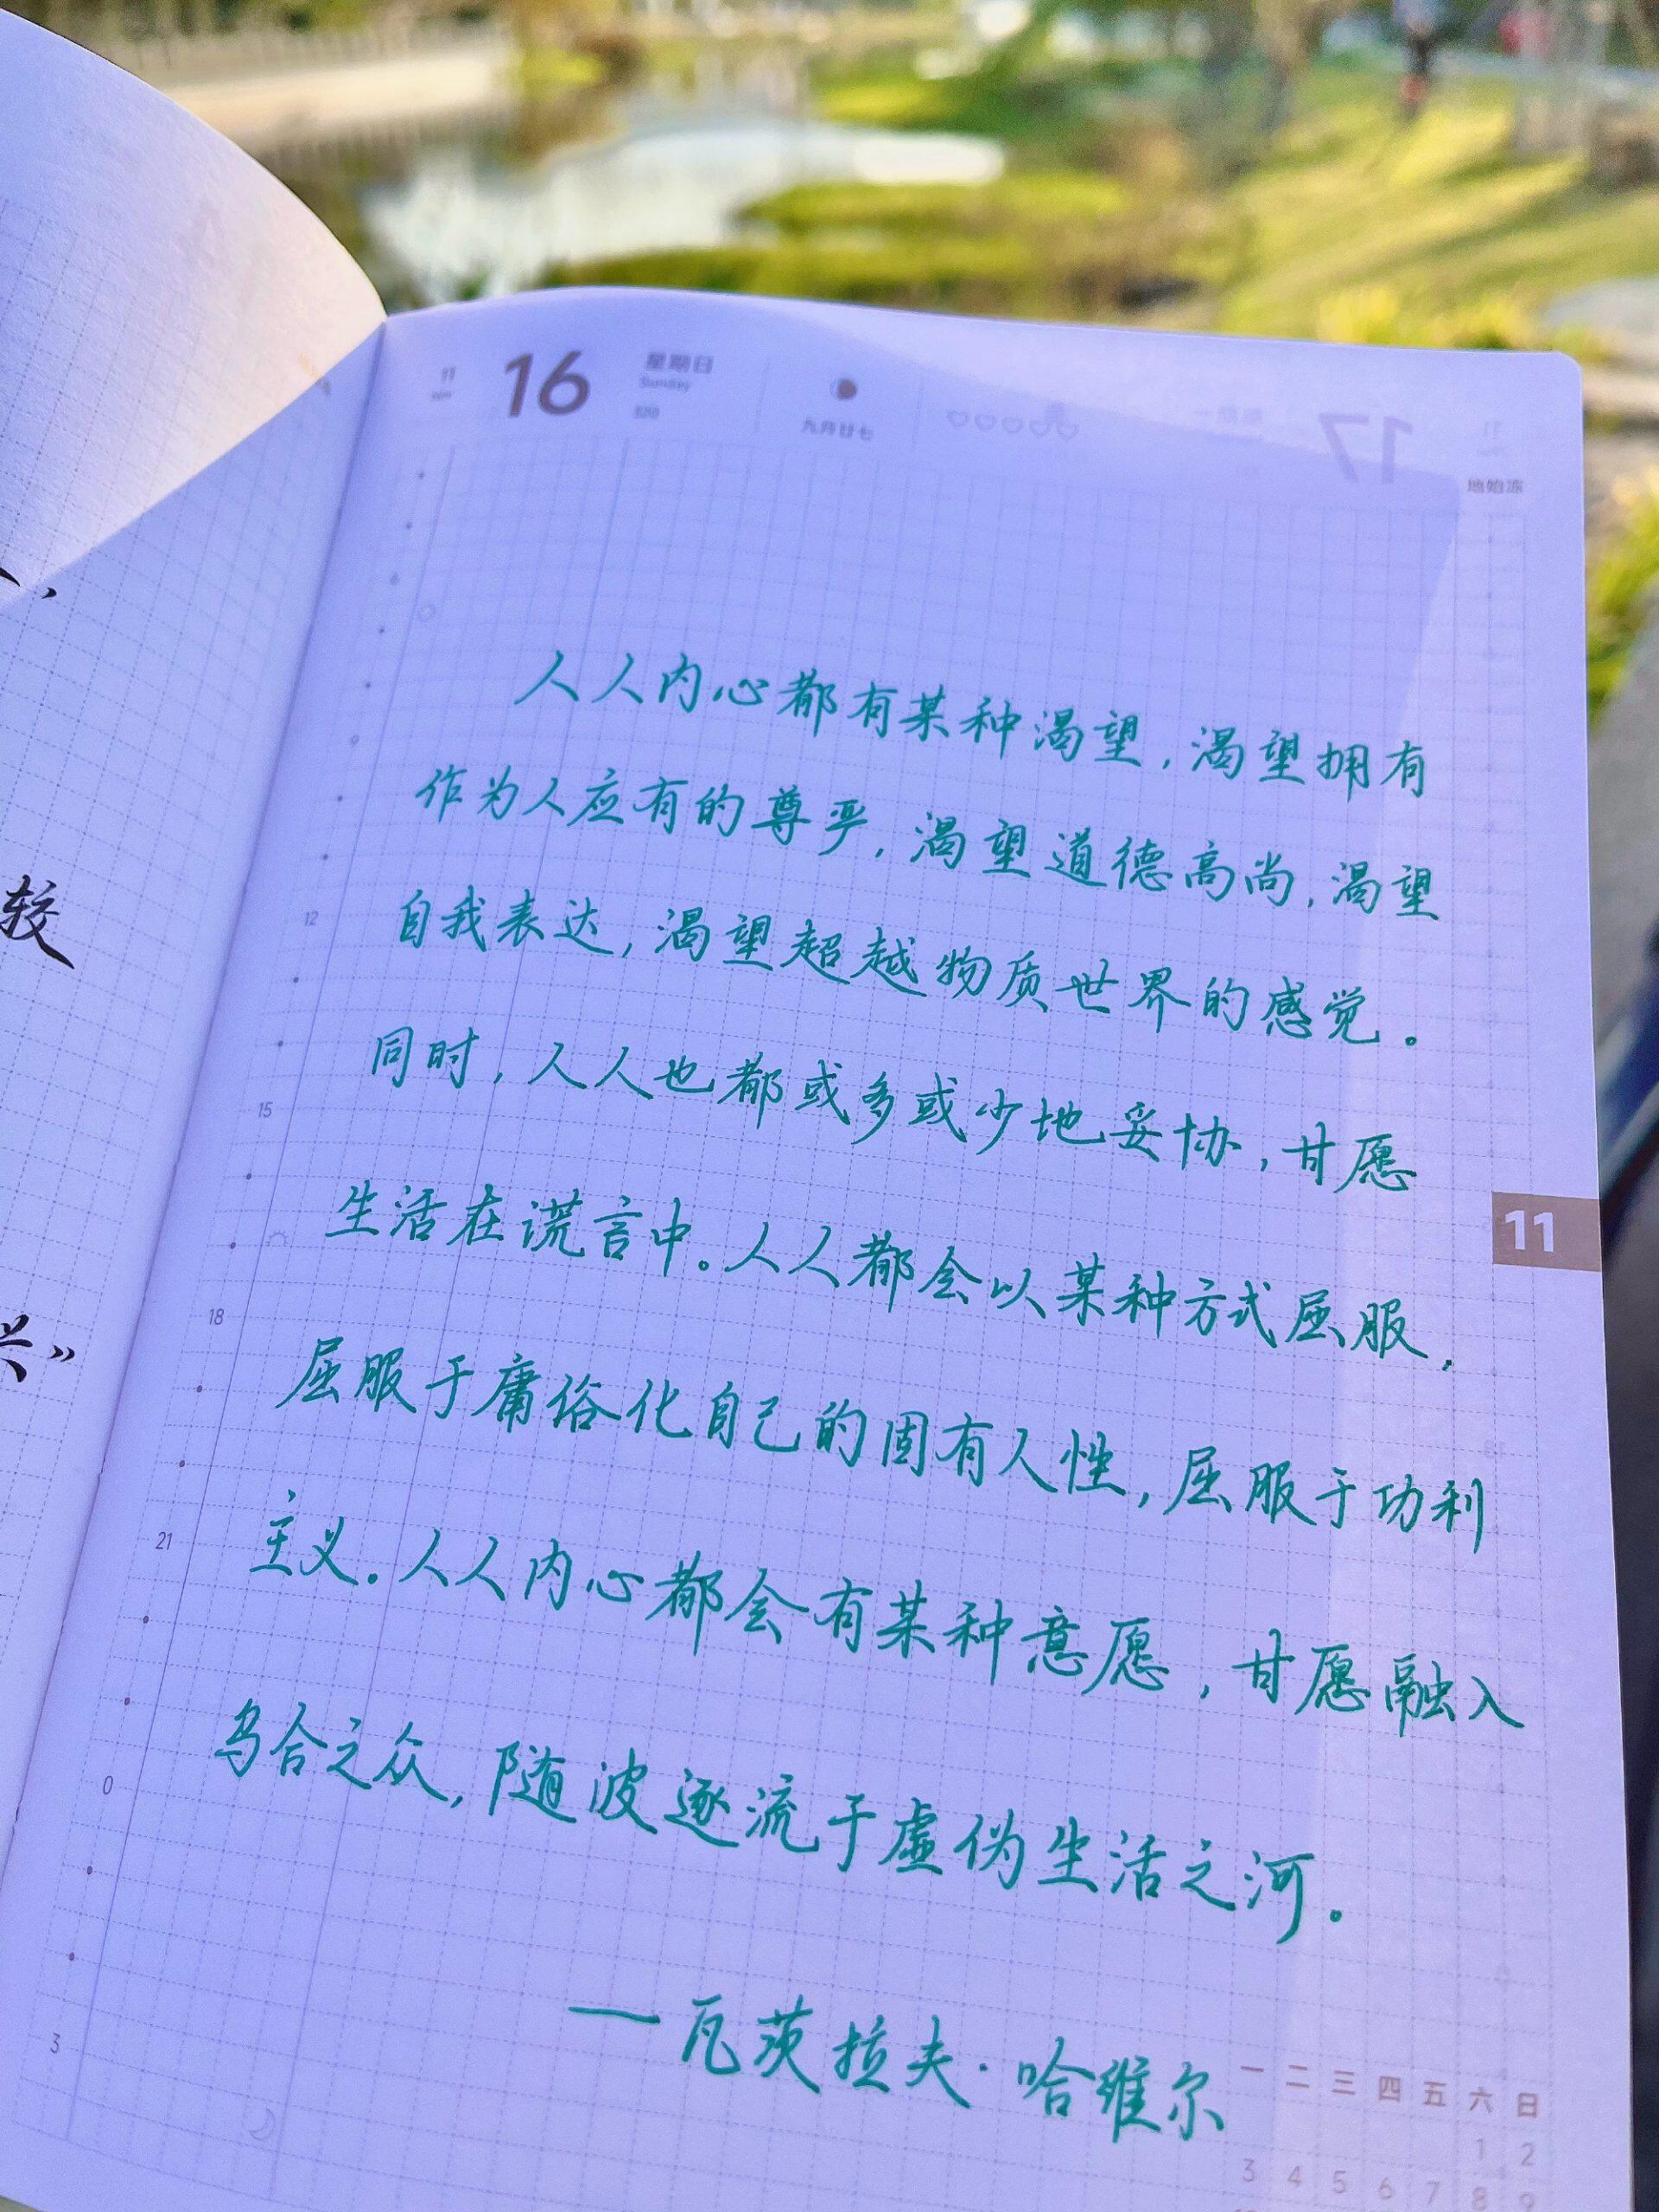 11
16
星期日
Sunday
320
九月廿七
17
地始冻
6
9
12
15
18
21
0
3
人人内心都有某种渴望，渴望拥有
作为人应有的尊严，渴望道德高尚，渴望
自我表达，渴望超越物质世界的感觉。
同时，人人也都或多或少地妥协，甘愿
生活在谎言中。人人都会以某种方式屈服，
屈服于庸俗化自己的固有人性，屈服于功利
主义。人人内心都会有某种意愿，甘愿融入
乌合之众，随波逐流于虚伪生活之河。
——瓦茨拉夫·哈维尔
11
一 二 三 四 五 六 日
1 2
3 4 5 6 7 8 9
较
兴”